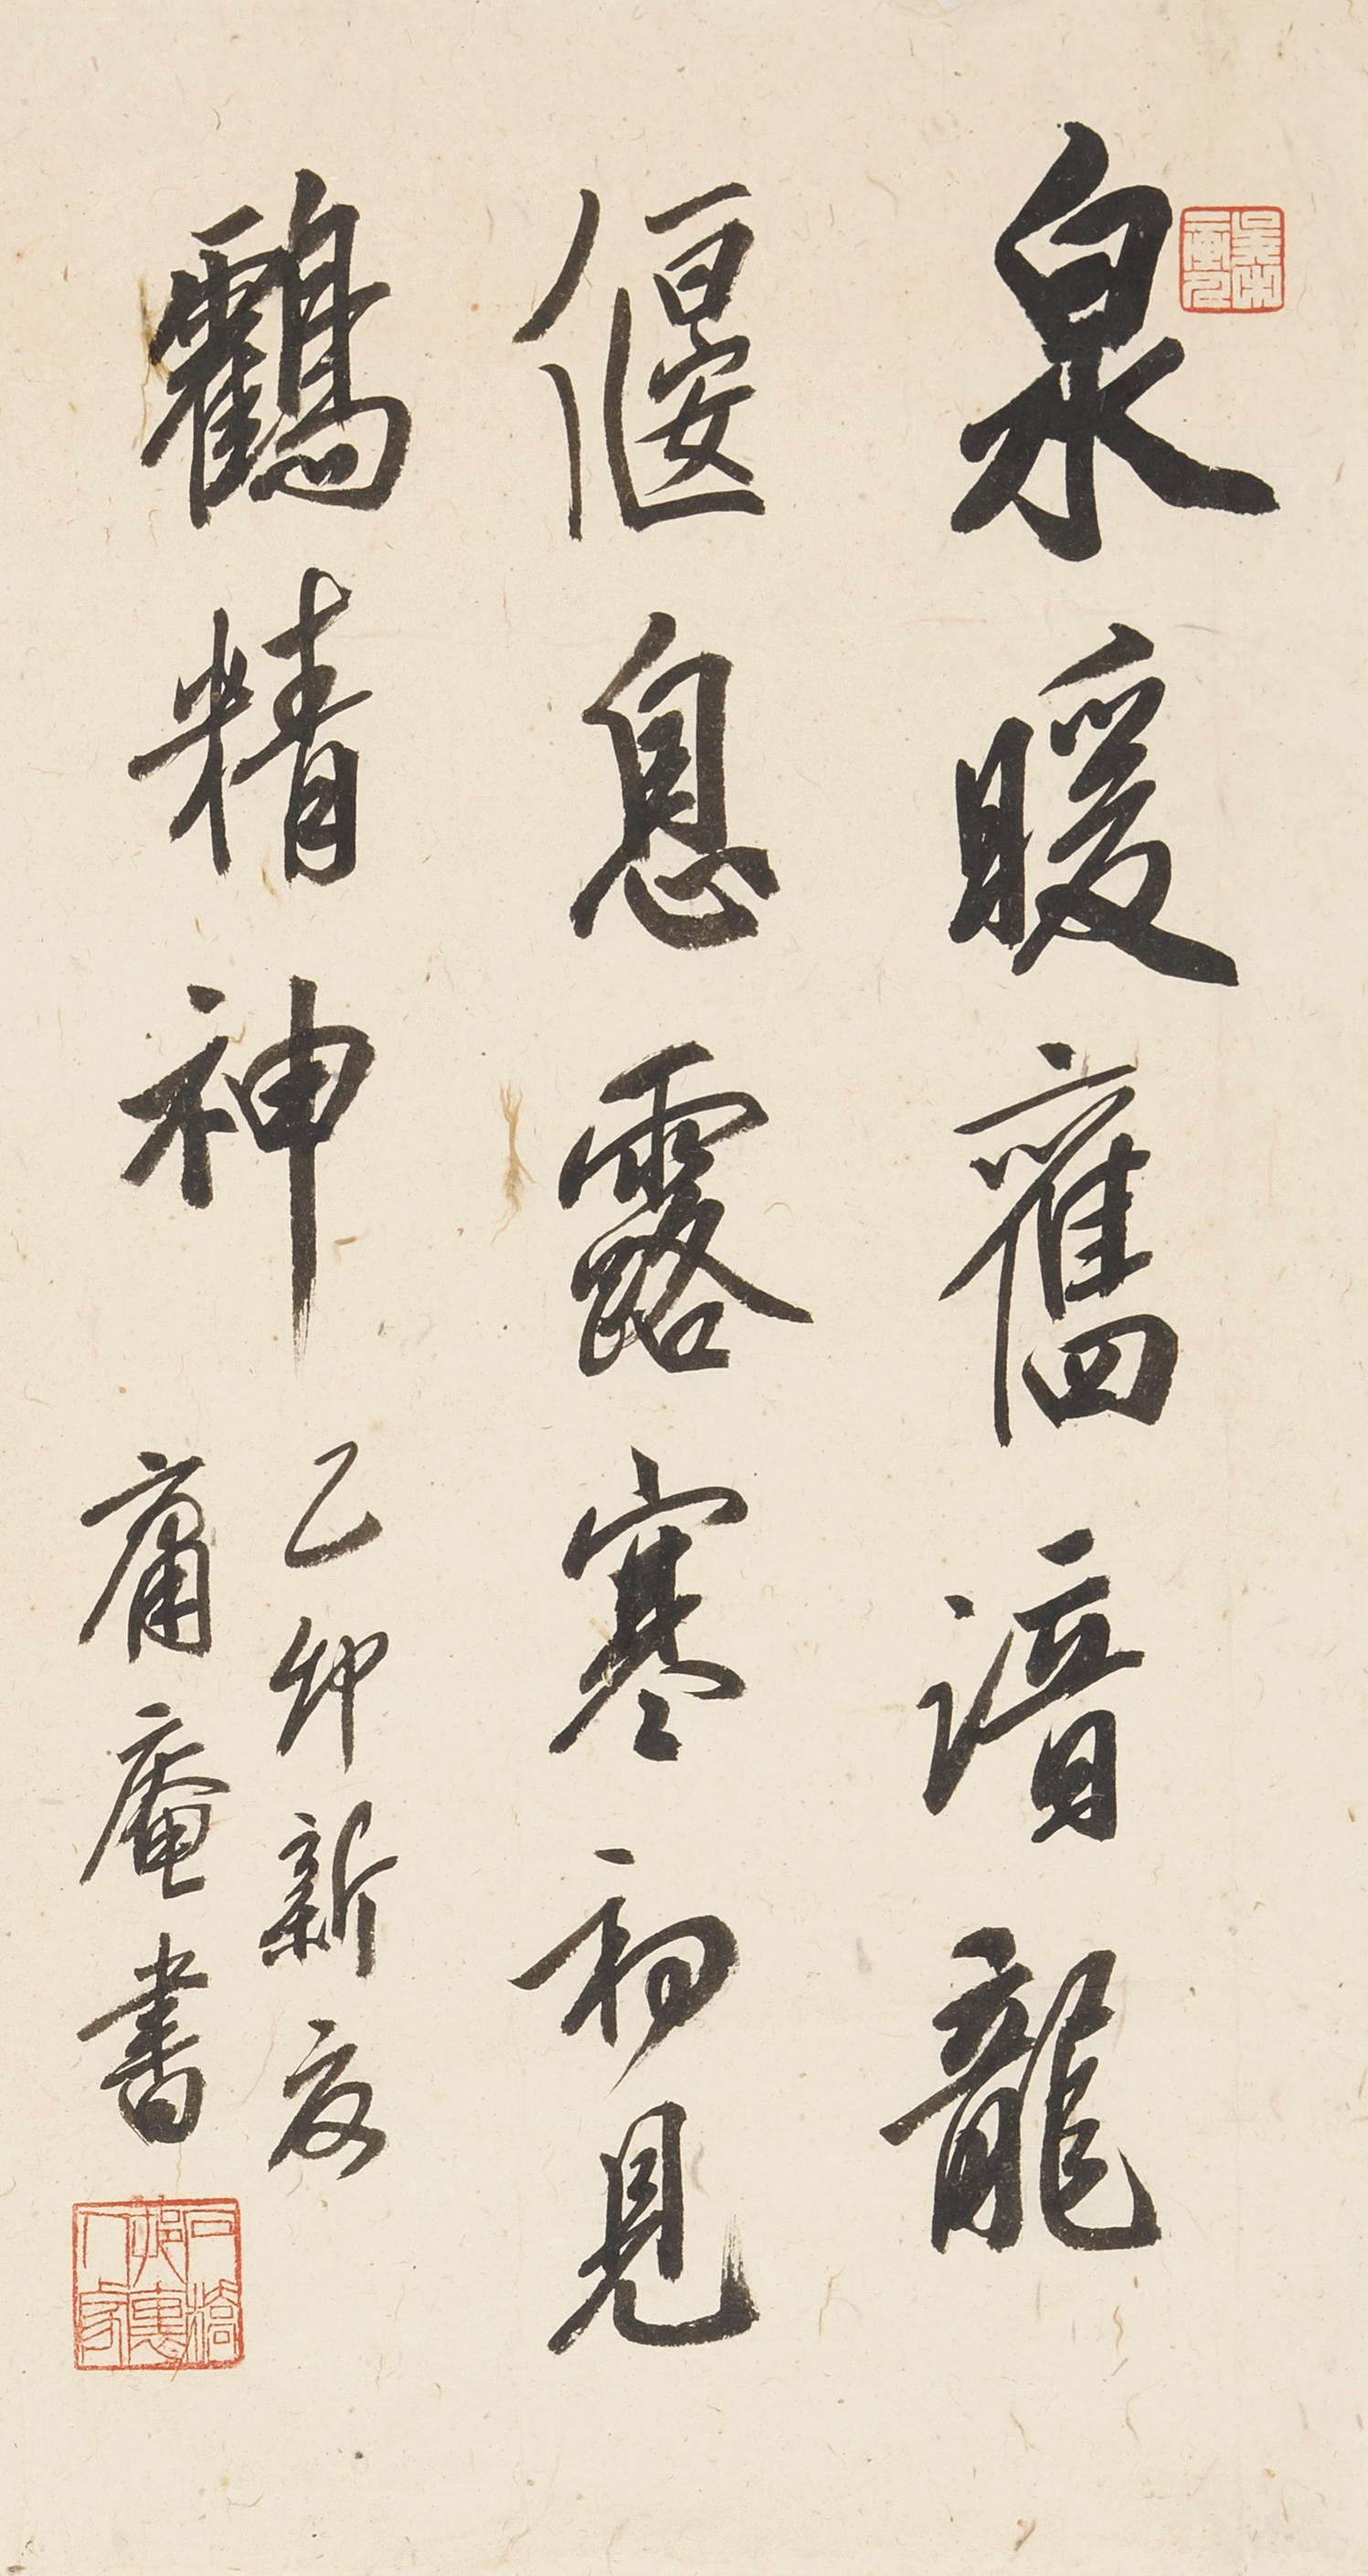 泉暖舊諳龍
偃息露寒初見
鸖精神
乙卯新夏
庸庵書